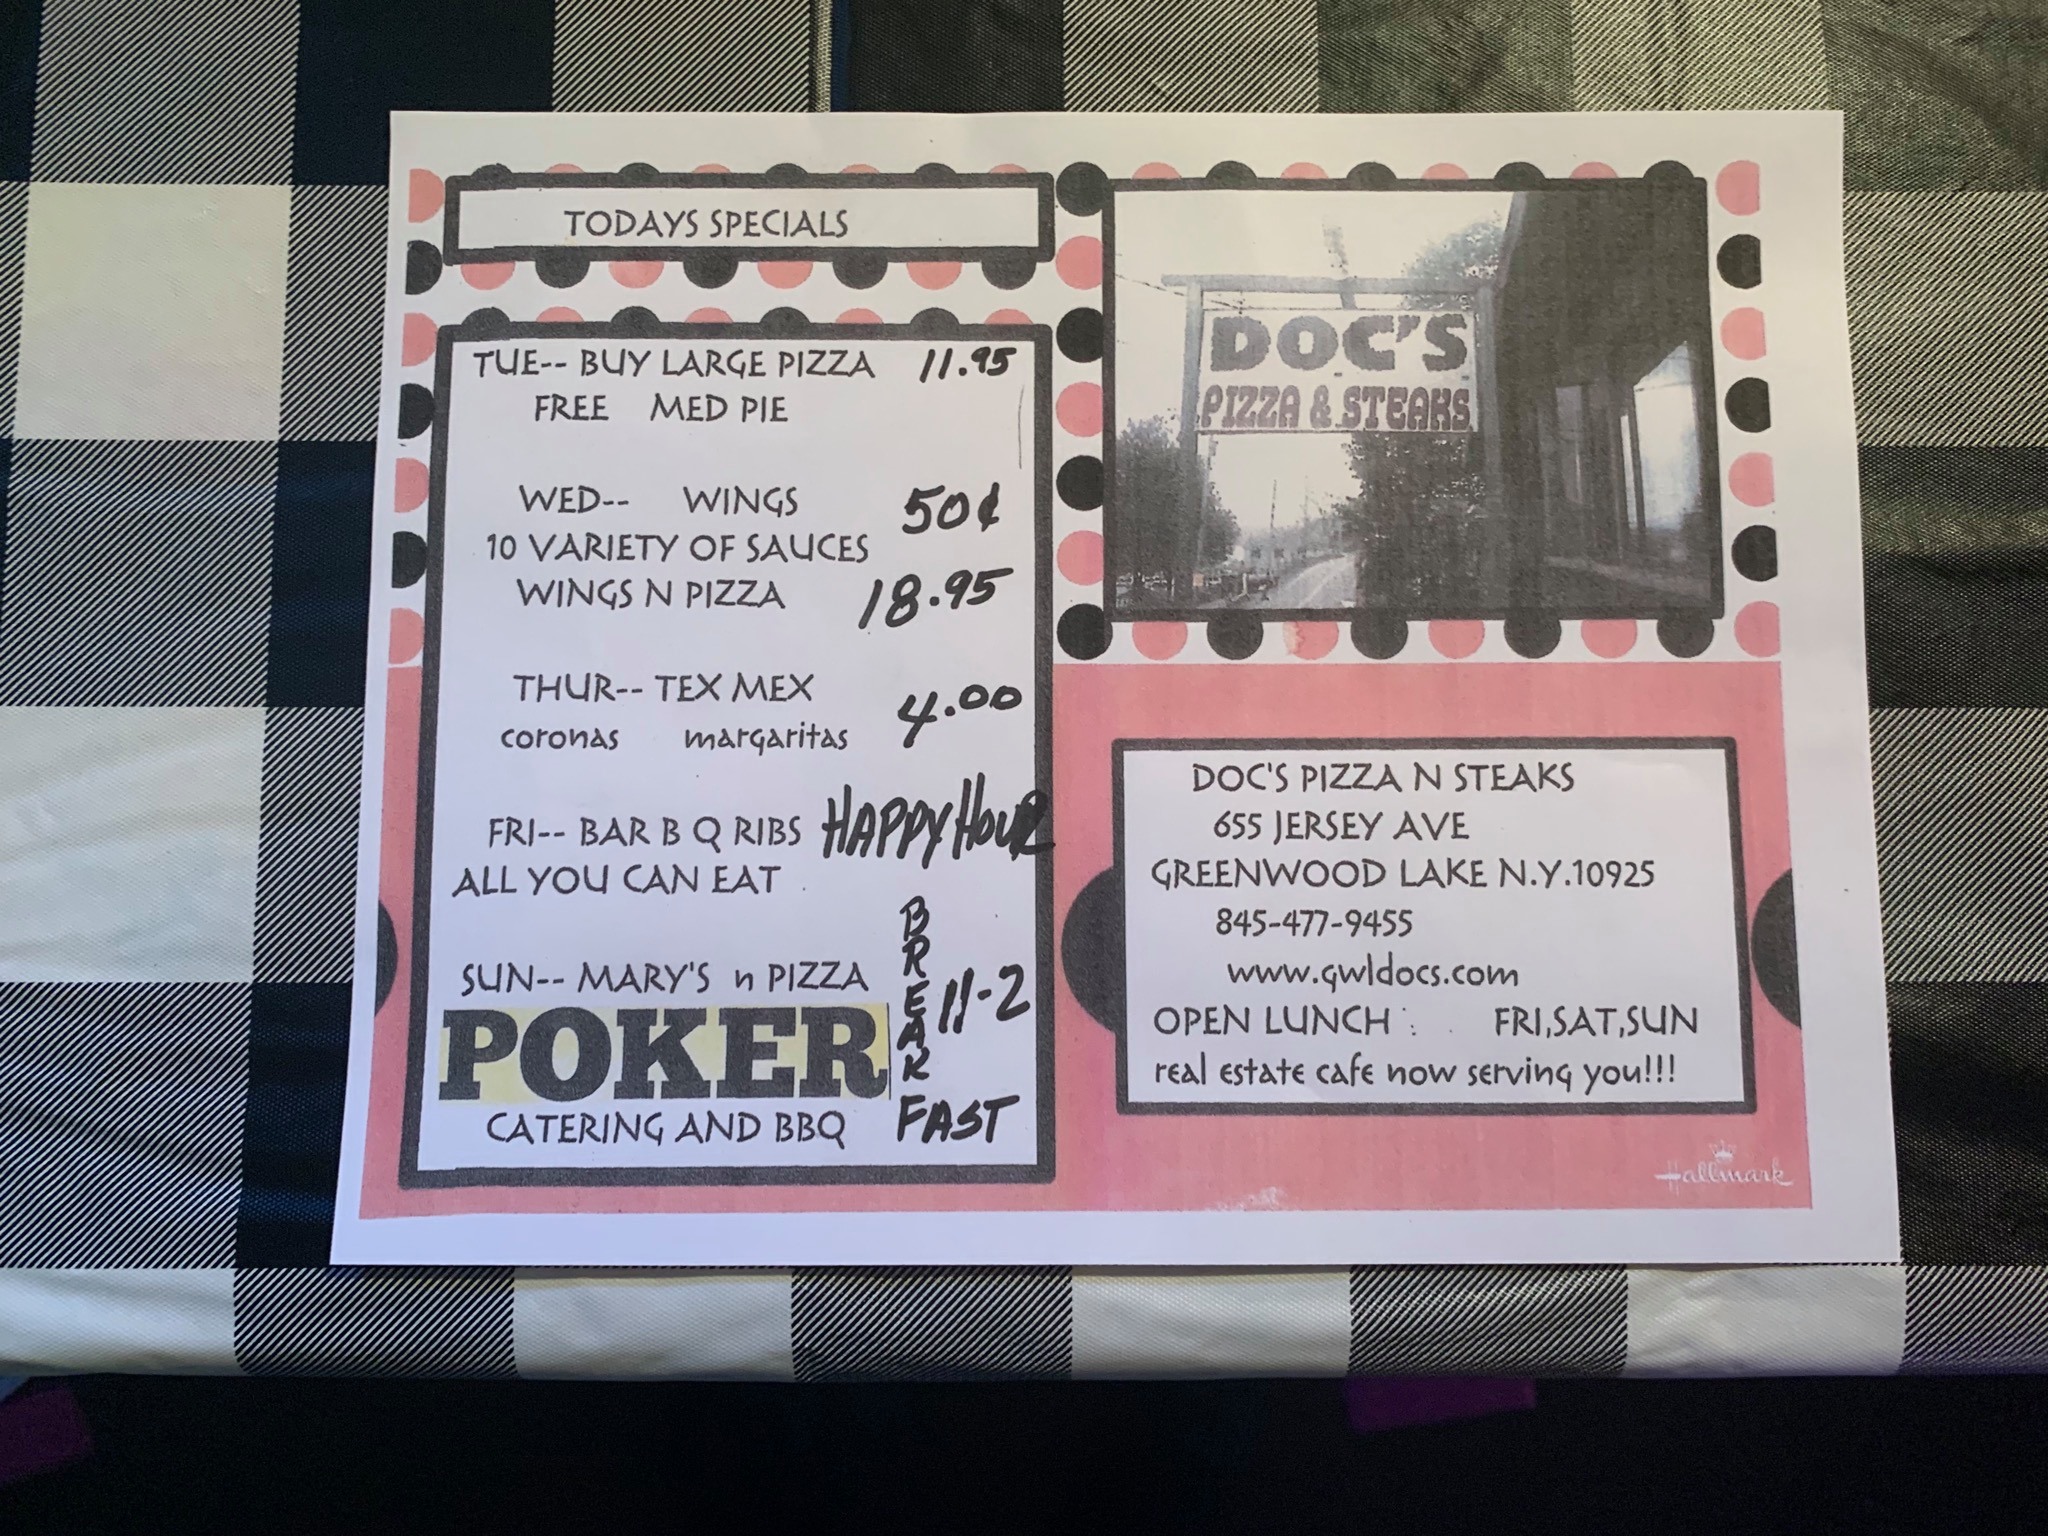 TODAYS SPECIALS
TUE-- BUY LARGE PIZZA 11.95
FREE MED PIE
WED-- WINGS 50¢
10 VARIETY OF SAUCES
WINGS N PIZZA 18.95
THUR-- TEX MEX 4.00
coronas margaritas
FRI-- BAR B Q RIBS HAPPY HOUR
ALL YOU CAN EAT
SUN-- MARY'S n PIZZA
BREAK 11-2
FAST
POKER
CATERING AND BBQ
DOC'S
PIZZA & STEAKS
DOC'S PIZZA N STEAKS
655 JERSEY AVE
GREENWOOD LAKE N.Y.10925
845-477-9455
www.gwldocs.com
OPEN LUNCH : FRI,SAT,SUN
real estate cafe now serving you!!!
Hallmark